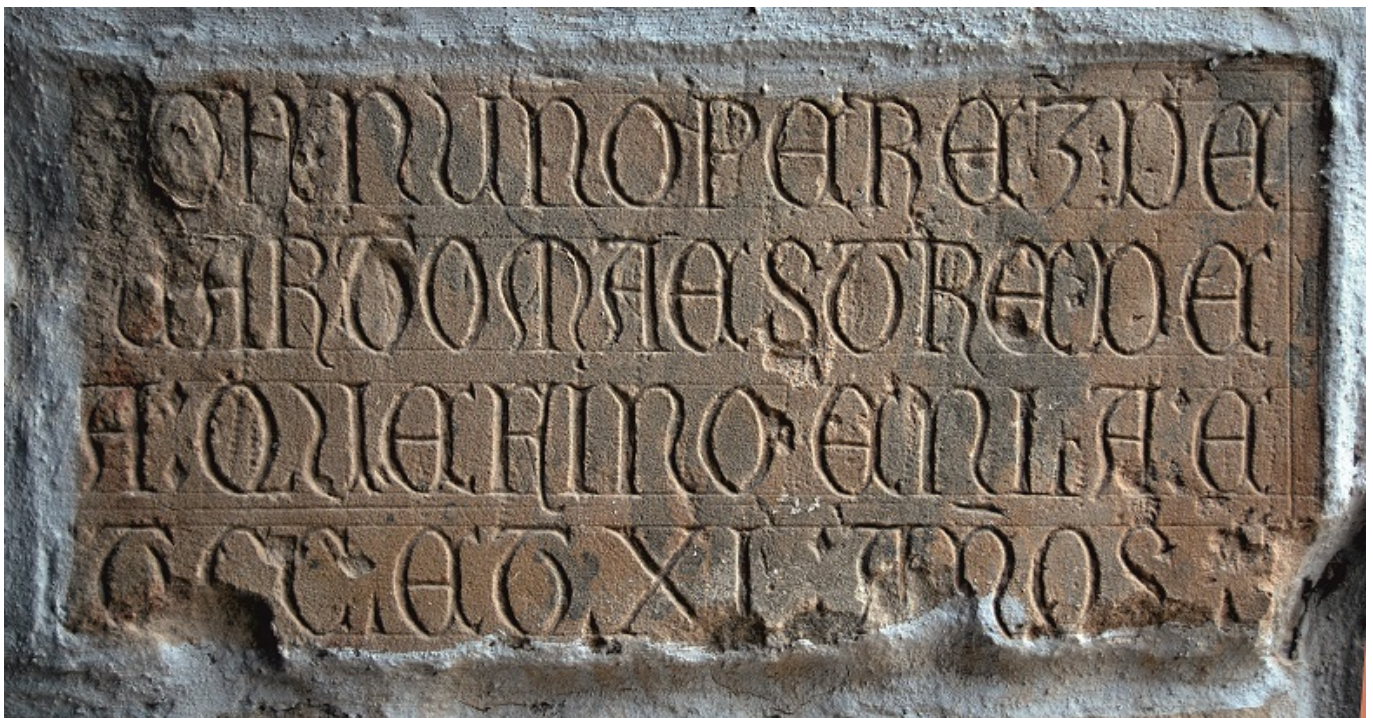 ON NUNO PEREZ: DE
UARTO MAESTRE DE
A: QUE FINO EN LA: E
CC. ET XI: AÑOS